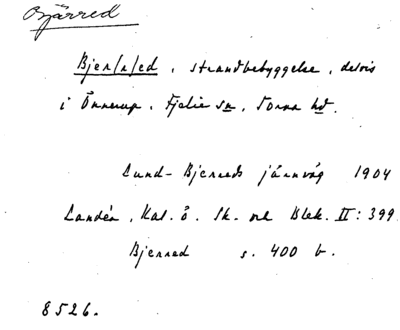 Bjärred
Bjer/r/ed, strandbebyggelse, delvis
i Önnerup, Fjelie sn, Torna hd.
Lund-Bjerreds järnväg 1904
Landén, Kat. ö. Sk. och Blek. II: 399
Bjerred s. 400 b.
8526.